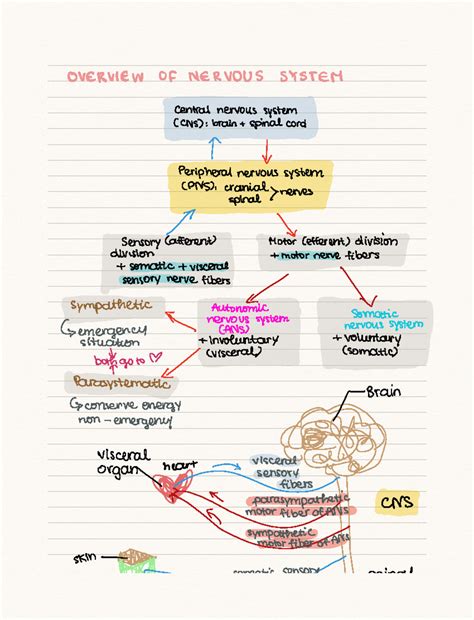 OVERVIEW OF NERVOUS SYSTEM
Central nervous system
(CNS): brain + spinal cord
Peripheral nervous system
(PNS): cranial
spinal > nerves
Sensory (afferent)
division
+ somatic + visceral
sensory nerve fibers
Motor (efferent) division
+ motor nerve fibers
Sympathetic
↳ emergency
situation
both go to ♡
Parasystematic
↳ conserve energy
non-emergency
Autonomic
nervous system
(ANS)
+ involuntary
(visceral)
Somatic
nervous system
+ voluntary
(somatic)
Brain
visceral
organ
heart
visceral
sensory
fibers
parasympathetic
motor fiber of ANS
sympathetic
motor fiber of ANS
CNS
skin
somatic sensory
spinal